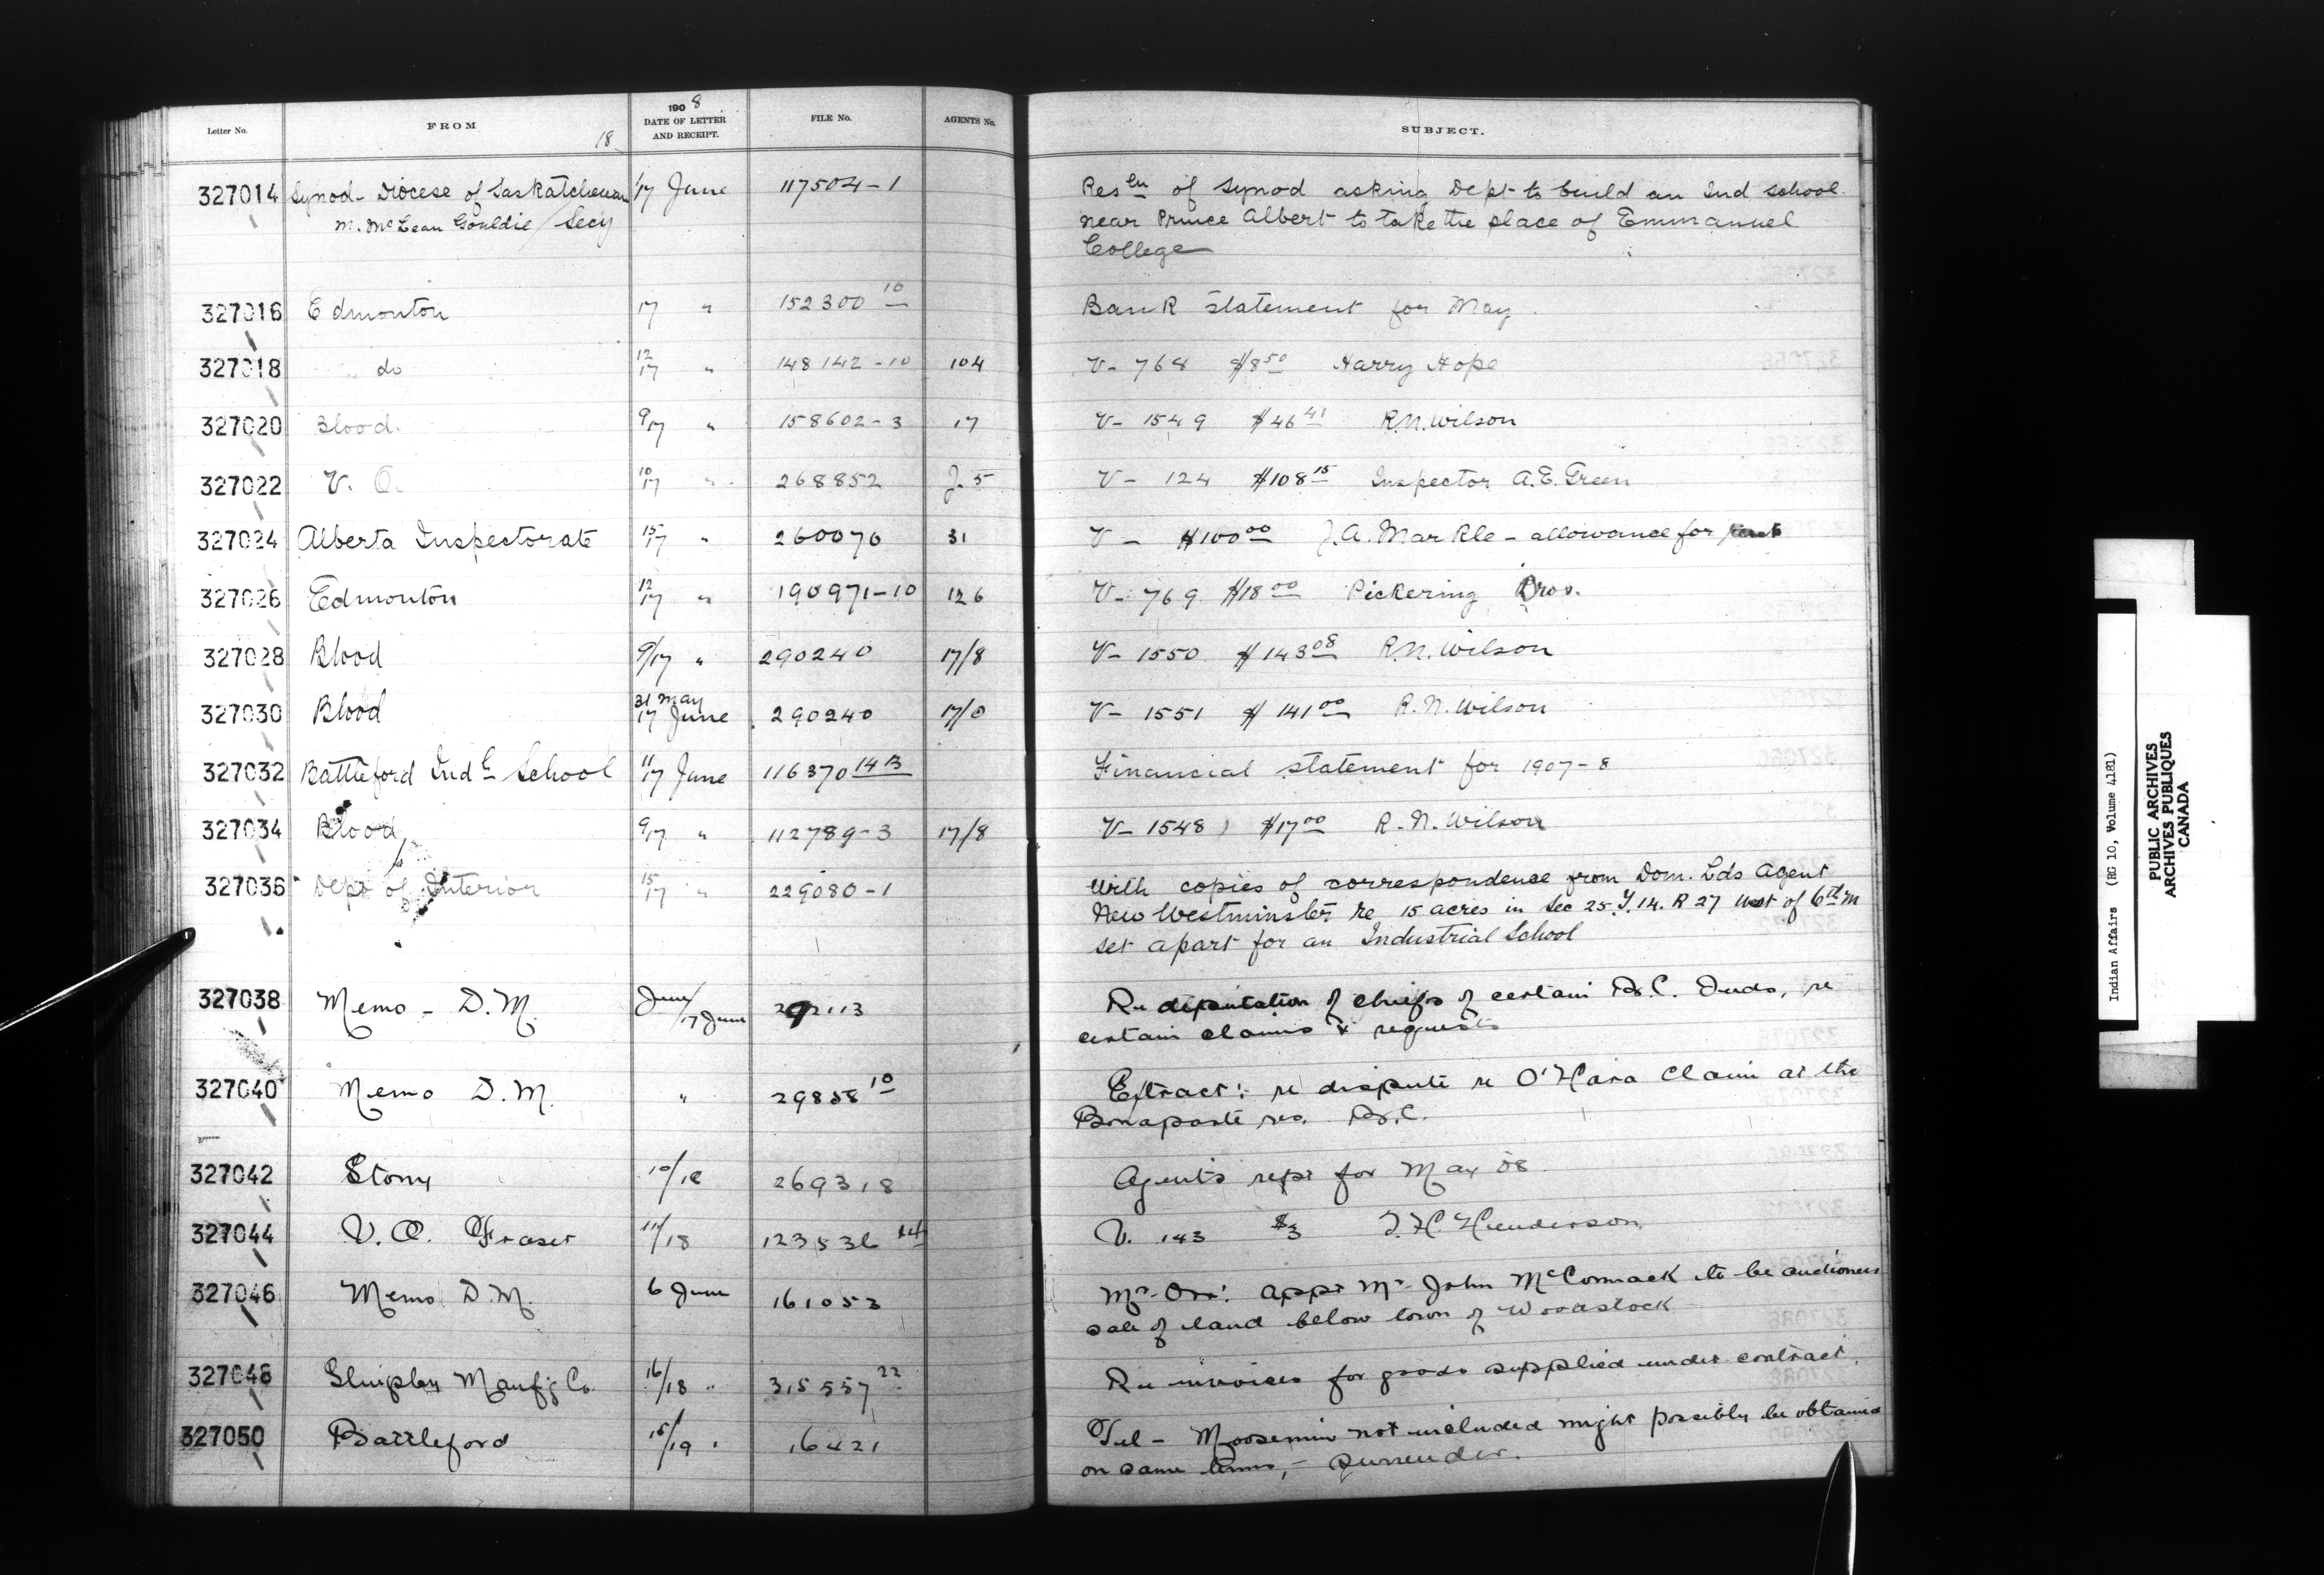 Letter No. FROM 18 1908 DATE OF LETTER AND RECEIPT. FILE No. AGENTS No. SUBJECT.
327014 Synod - Diocese of Saskatchewan 17 June 117504-1 Resln of Synod asking Dept to build an Ind school
M. McLean Gouldie / Secy near Prince Albert to take the place of Emmanuel
College
327016 Edmonton 17 " 152300 10 Bank statement for May
327018 " do 12/17 " 148142-10 104 V- 768 $8 50 Harry Hope
327020 Blood. 9/17 " 158602-3 17 V- 1549 $46 41 R.N. Wilson
327022 V. O. 10/17 " 268852 J. 5 V- 124 $108 15 Inspector A.E. Green
327024 Alberta Inspectorate 15/17 " 260076 31 V - $100 00 J.A. Markle - allowance for rent
327026 Edmonton 12/17 " 190971-10 126 V- 769 $18 00 Pickering Bros.
327028 Blood 9/17 " 290240 17/8 V- 1550 $143 08 R.N. Wilson
327030 Blood 31 May 17 June 290240 17/0 V- 1551 $141 00 R.N. Wilson
327032 Battleford Indl School 11/17 June 116370 14B Financial statement for 1907-8
327034 Blood 9/17 " 112789-3 17/8 V- 1548 $17 00 R.N. Wilson
327036 Dept of Interior 15/17 " 229080-1 With copies of correspondence from Dom. Lds Agent
New Westminster re 15 acres in Sec 25. T. 14. R 27 West of 6th M
set apart for an Industrial School
327038 Memo - D.M. June/17 June 292113 Re deputation of chiefs of certain B.C. Inds, re
certain claims & requests
327040 Memo D.M. " 29858 10 Extract: re dispute re O'Hara Claim at the
Bonaparte res. B.C.
327042 Stony 10/18 269318 Agent's rept for May 08
327044 V.O. Fraser 11/18 123536 V. 143 $3 T.H. Henderson
327046 Memo D.M. 6 June 161053 Mr. Orr: appt Mr. John McCormack to be auctioneer
sale of land below town of Woodstock
327048 Shipley Manufg Co. 16/18 " 315557 22 Re invoices for goods supplied under contract.
327050 Battleford 18/19 " 16421 Tel - Moosomin not included might possibly be obtained
on same terms, - surrender.
Indian Affairs (RG 10, Volume 4181)
PUBLIC ARCHIVES
ARCHIVES PUBLIQUES
CANADA